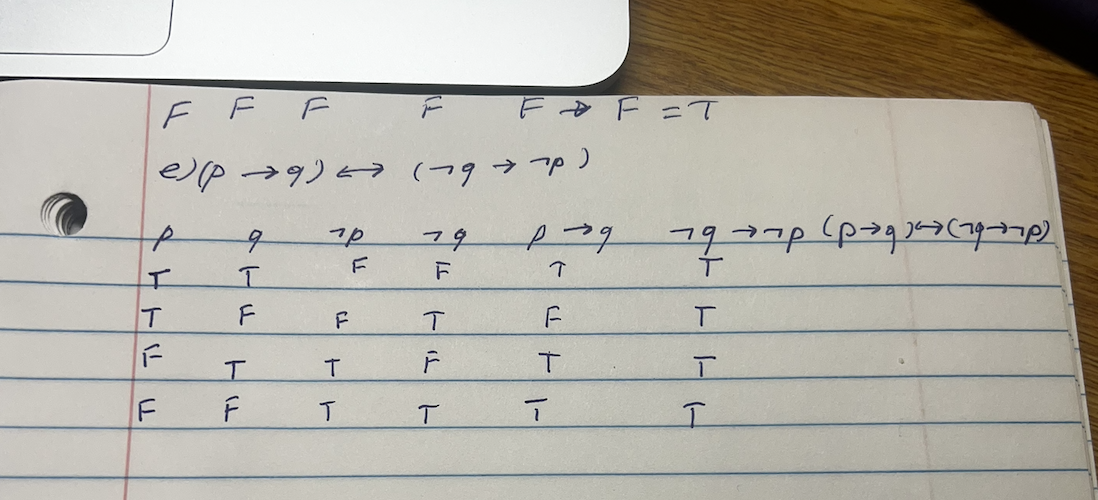 F F F F F → F = T
e) (p → q) ↔ (¬q → ¬p)
p q ¬p ¬q p → q ¬q → ¬p (p → q) ↔ (¬q → ¬p)
T T F F T T
T F F T F T
F T T F T T
F F T T T T